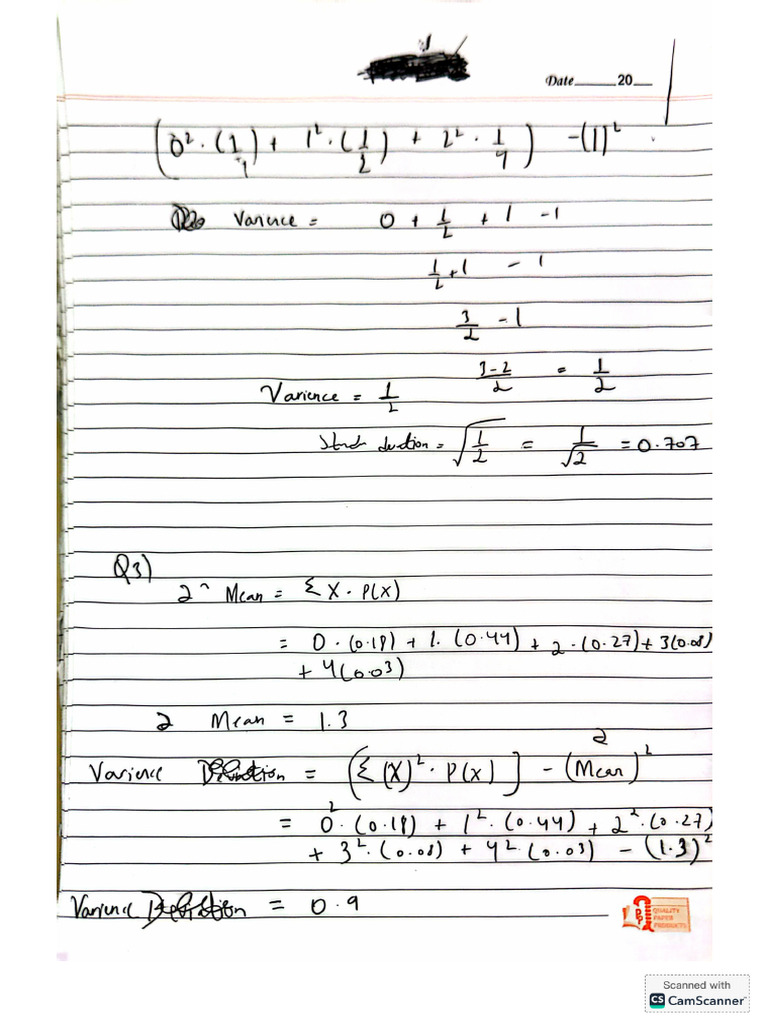 Date ______ 20 __
(0² · (1/4) + 1² · (1/2) + 2² · 1/4) - (1)²
Varience = 0 + 1/2 + 1 - 1
1/2 + 1 - 1
3/2 - 1
3-2/2 = 1/2
Varience = 1/2
= √1/2 = 1/√2 = 0.707
Q3)
Mean = Σ X · P(X)
= 0 · (0.18) + 1 · (0.44) + 2 · (0.27) + 3(0.08)
+ 4(0.03)
Mean = 1.3
Varience = (Σ (X)² · P(x)] - (Mean)²
= 0² · (0.18) + 1² · (0.44) + 2² · (0.27)
+ 3² · (0.08) + 4² · (0.03) - (1.3)²
Varience = 0.9
QUALITY
PAPER
PRODUCTS
Scanned with
CS CamScanner